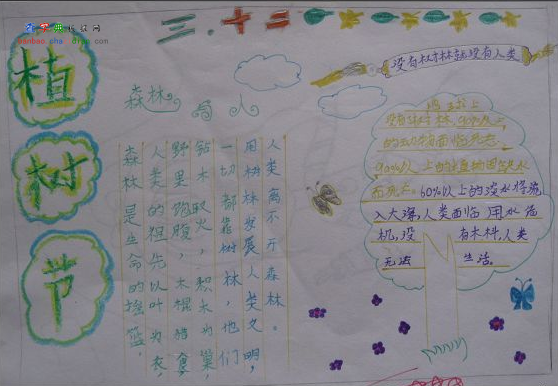 三.十二
植
树
节
没有树林就没有人类
森林与人
森林是生命的摇篮,
人类的祖先以叶为衣,
野里饱腹,木棍猎食,
钻木取火,积木为巢,
一切都靠树林,他们
用树林发展人类文明,
人类离不开森林。
没有树林,90%以上
的动物面临死亡,
90%以上的植物因缺水
而死亡。60%以上的淡水将流
入大海,人类面临用水危
机,没有木料,人类
无法生活。